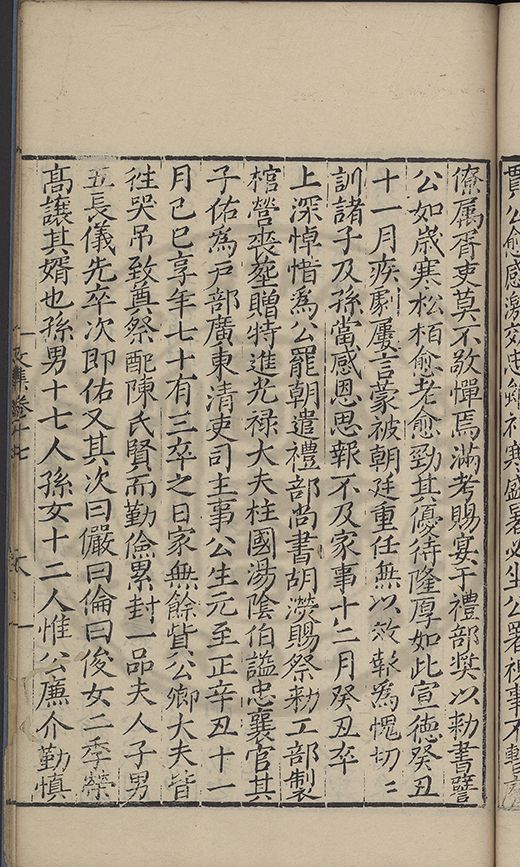 賈公愈感激効忠雖祁寒盛暑必坐公署視事不暫
僚属胥吏莫不敬憚焉滿考賜宴于禮部奬以勅書譬
公如歳寒松栢愈老愈勁其優待隆厚如此宣徳癸丑
十一月疾劇屢言蒙被朝廷重任無以效報為愧切〻
訓諸子及孫當感恩思報不及家事十二月癸丑卒
上深悼惜為公罷朝遣禮部尚書胡濙賜祭勅工部製
棺營喪塟贈特進光禄大夫柱國湯隂伯謚忠襄官其
子佑為户部廣東清吏司主事公生元至正辛丑十一
月己巳享年七十有三卒之日家無餘貲公卿大夫皆
徃哭吊致奠祭配陳氏賢而勤儉累封一品夫人子男
五長儀先卒次即佑又其次曰儼曰倫曰俊女二季榮
髙讓其婿也孫男十七人孫女十二人惟公廉介勤慎
文集卷十七